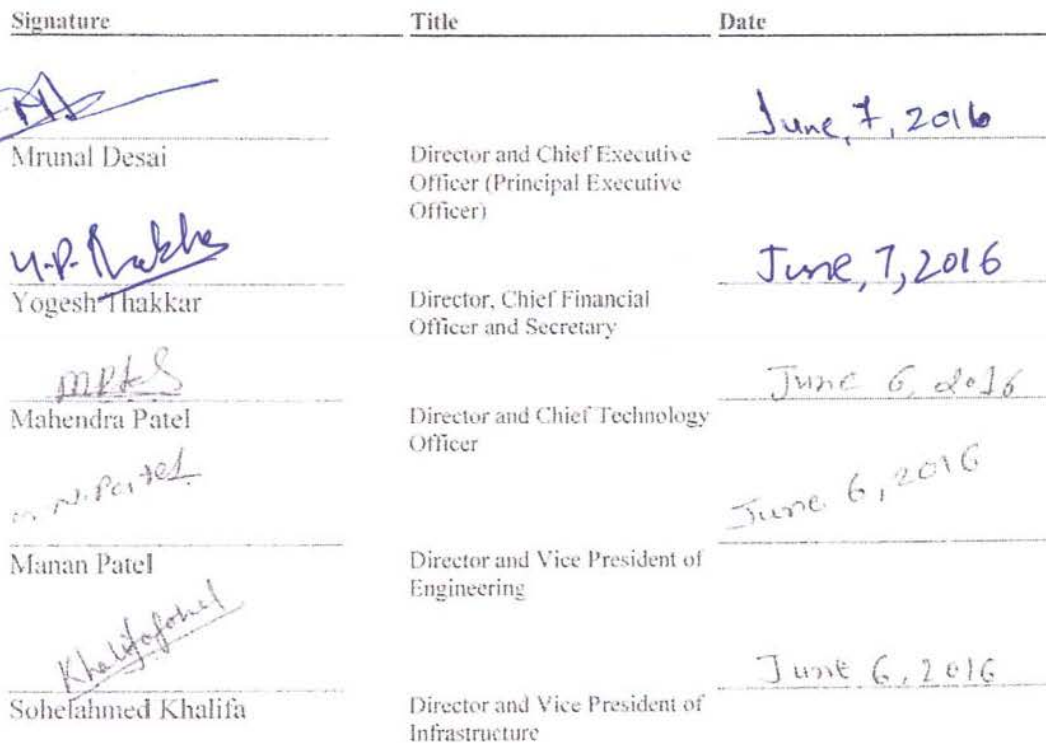 Signature Title Date
June, 7, 2016
Mrunal Desai Director and Chief Executive
Officer (Principal Executive
Officer)
Y.P. Thakkar June, 7, 2016
Yogesh Thakkar Director, Chief Financial
Officer and Secretary
June 6, 2016
Mahendra Patel Director and Chief Technology
Officer
m. N. Patel June 6, 2016
Manan Patel Director and Vice President of
Engineering
Khalifa June 6, 2016
Sohelahmed Khalifa Director and Vice President of
Infrastructure